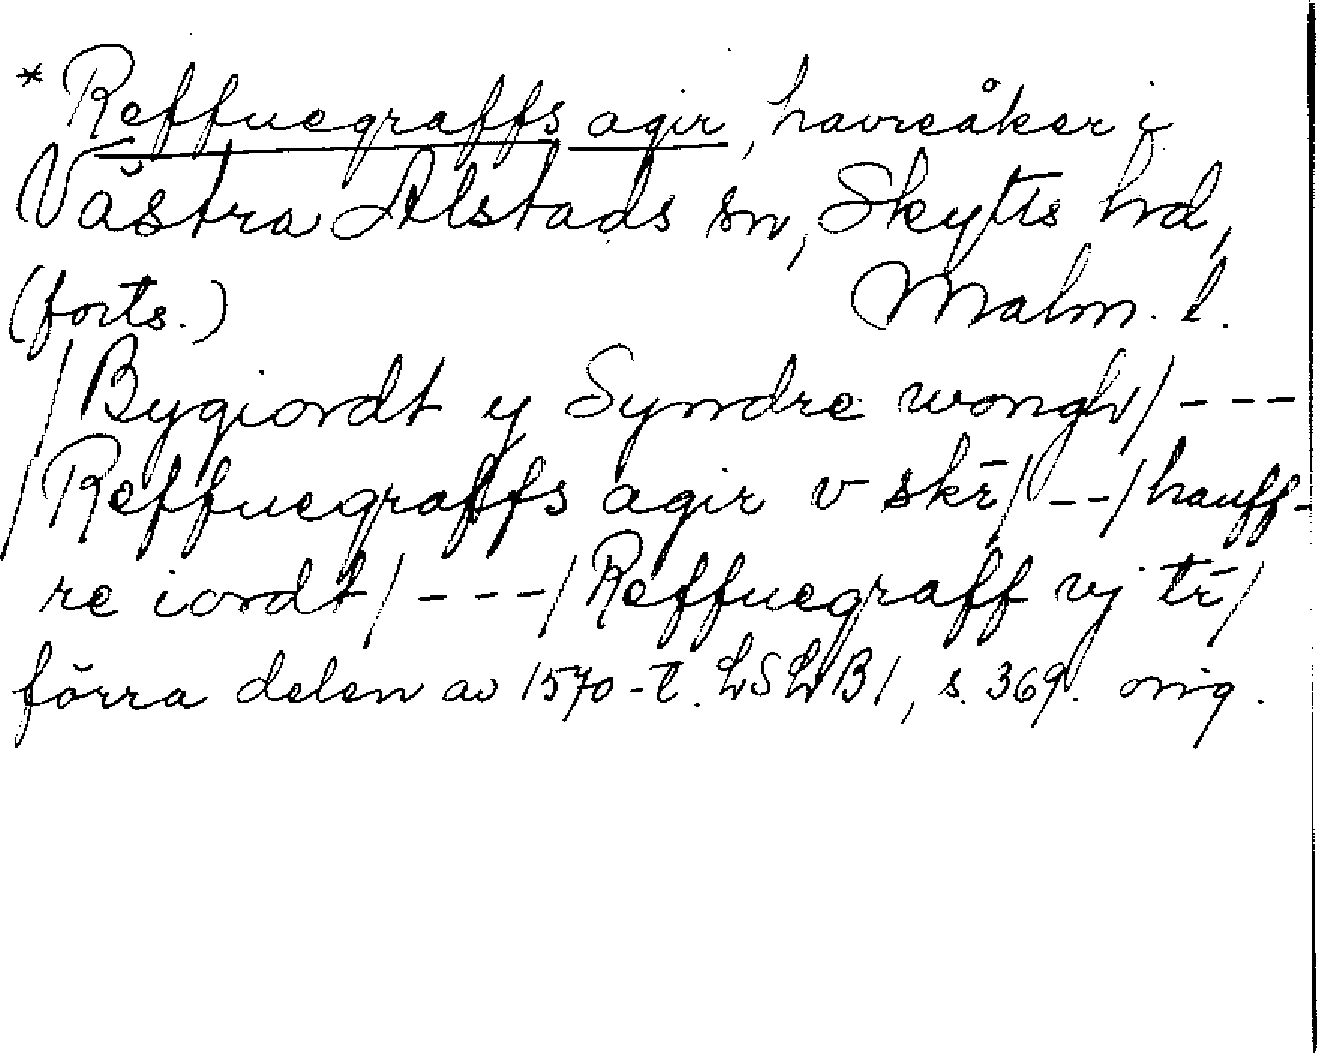 * Reffuegraffs agir, havreåker i
Västra Alstads sn, Skytts hd,
(forts.) Malm. l.
/Bygiordt y Syndre wongh/ ---
/Reffuegraffs agir v skē/ --/hauff-
re iordt/ ---/Reffuegraff vj tē/
förra delen av 1570-t. LSLB1, s. 369. orig.